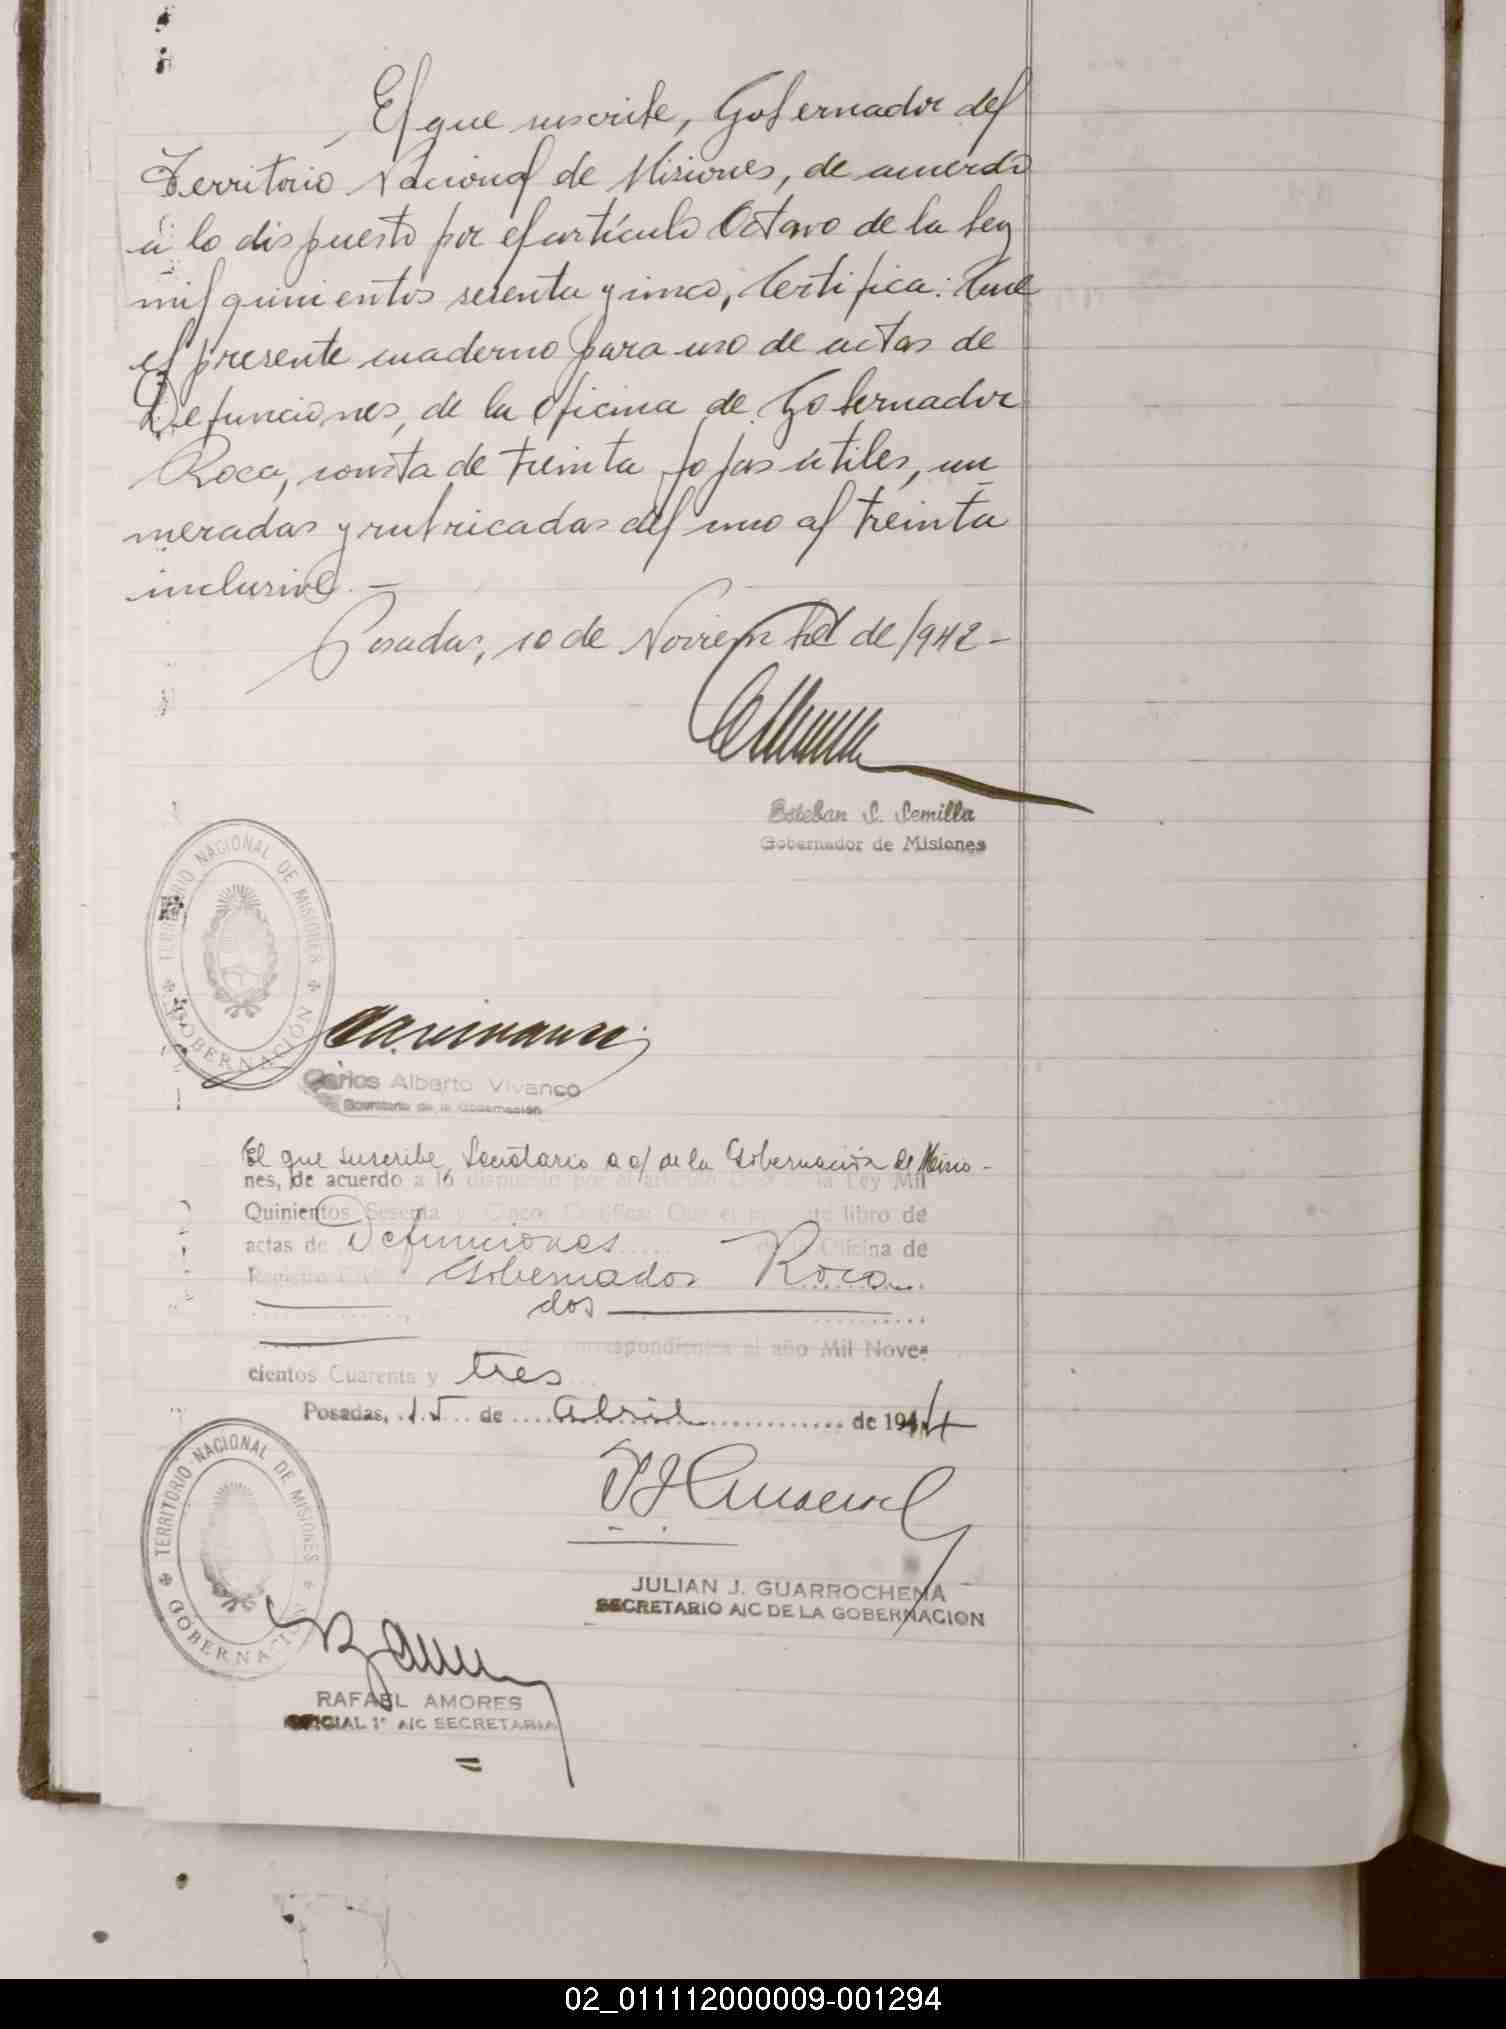 El que suscribe, Gobernador del
Territorio Nacional de Misiones, de acuerdo
a lo dispuesto por el artículo Octavo de la Ley
mil quinientos sesenta y cinco, Certifica: Que
el presente cuaderno para uso de actas de
Defunciones, de la oficina de Gobernador
Roca, consta de treinta fojas útiles, nu
meradas y rubricadas del uno al treinta
inclusive. —
Posadas, 10 de Noviembre de 1942 -
Esteban S. Semilla
Gobernador de Misiones
TERRITORIO NACIONAL DE MISIONES
GOBERNACIÓN
Carlos Alberto Vivanco
Secretario de la Gobernación
El que suscribe, Secretario a c/ de la Gobernación de Misio-
nes, de acuerdo a lo dispuesto por el artículo de la Ley Mil
Quinientos Sesenta y Cinco, Certifica: Que el presente libro de
actas de Defunciones de la Oficina de
Registro Civil Gobernador Roca
dos
correspondiente al año Mil Nove=
cientos Cuarenta y tres
Posadas, 15 de Abril de 1944
JULIAN J. GUARROCHENA
SECRETARIO A/C DE LA GOBERNACION
TERRITORIO NACIONAL DE MISIONES
GOBERNACIÓN
RAFAEL AMORES
OFICIAL 1° A/C SECRETARIA
02_011112000009-001294